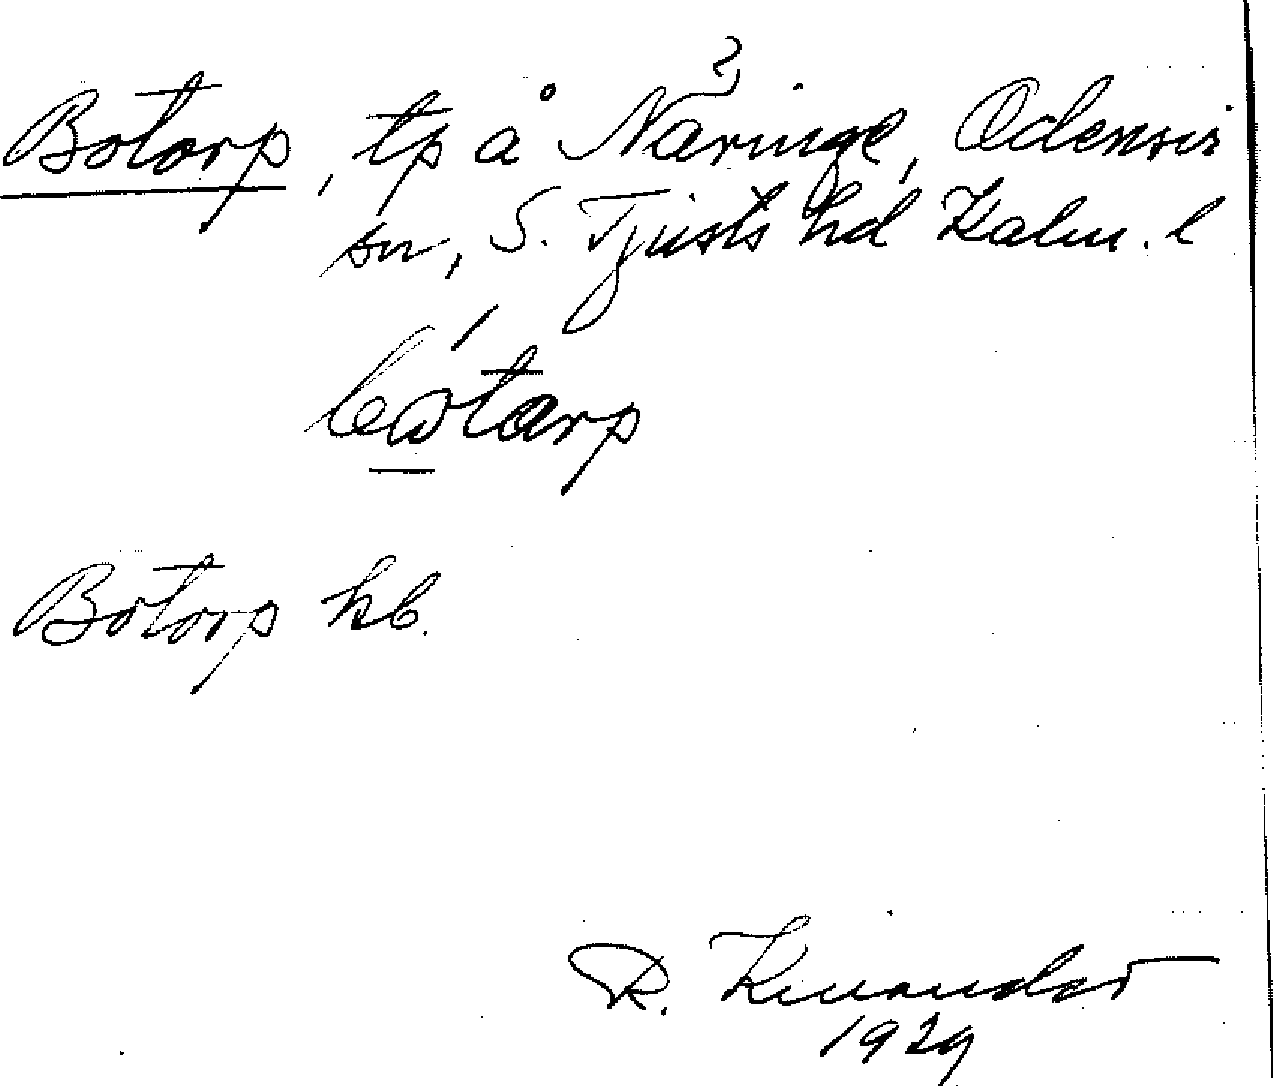 Botorp, tp å Näringe, Odensvi
sn, S. Tjusts hd Kalm. l
Botorp kb.
R. Kinander
1929